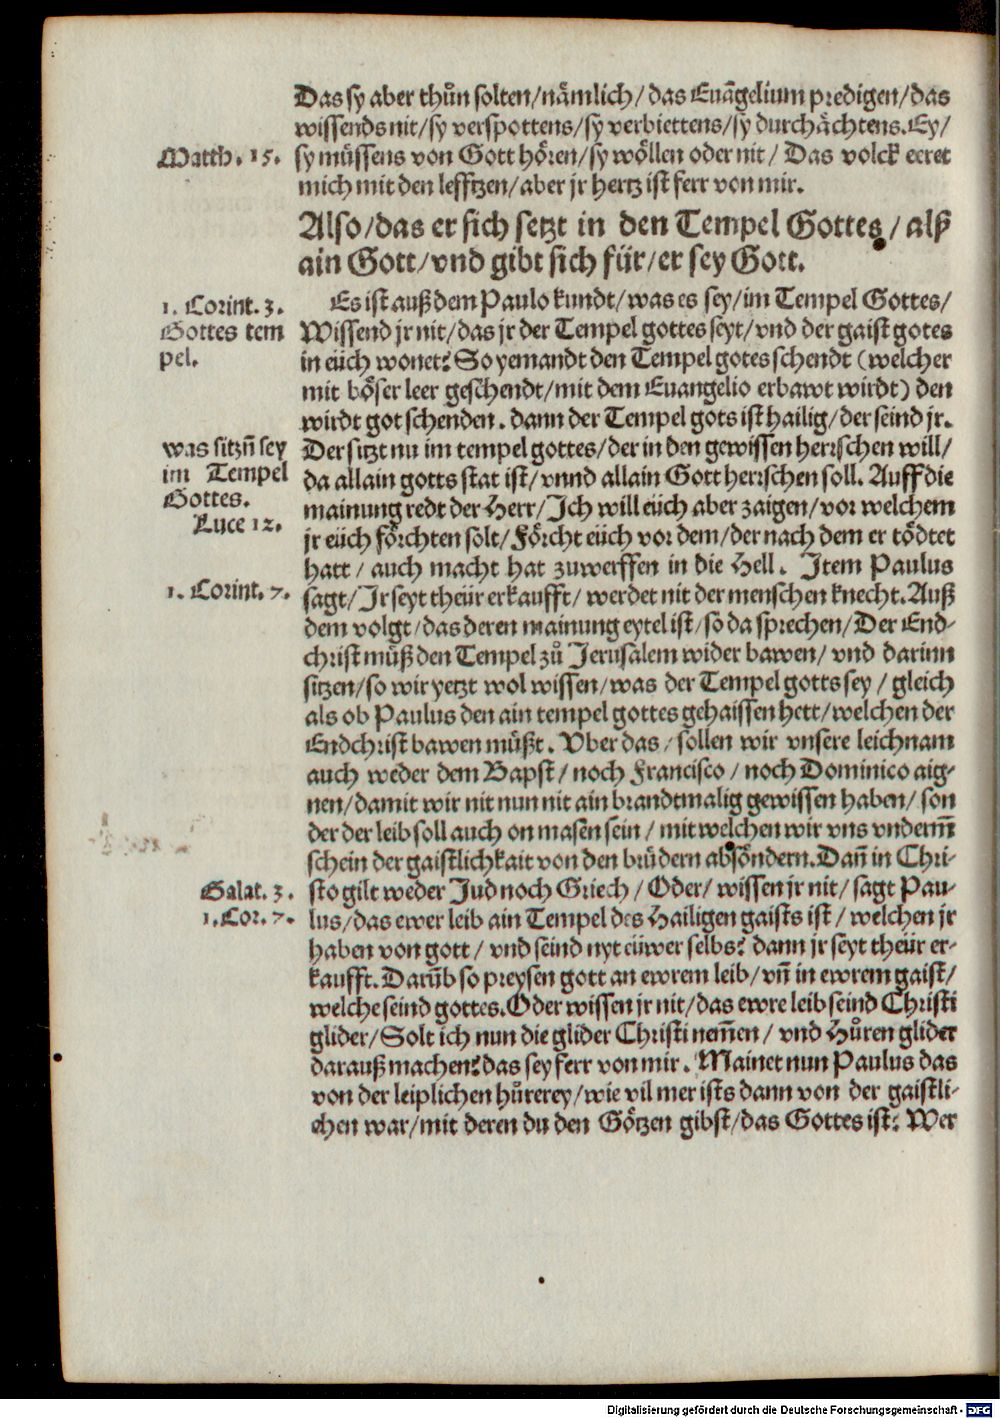 Das sy aber thůn solten/nämlich/das Euãgelium predigen/das
wissends nit/sy verspottens/sy verbiettens/sy durchächtens. Ey/
Matth. 15.
sy müssens von Gott hören/sy wöllen oder nit/ Das volck eeret
mich mit den lefftzen/aber jr hertz ist ferr von mir.
Also/das er sich setzt in den Tempel Gottes/alß
ain Gott/vnd gibt sich für/er sey Gott.
1. Corint. 3.
Gottes tem
pel.
Es ist auß dem Paulo kundt/was es sey/im Tempel Gottes/
Wissend jr nit/das jr der Tempel gottes seyt/vnd der gaist gotes
in eüch wonet? So yemandt den Tempel gotes schendt (welcher
mit böser leer geschendt/mit dem Euangelio erbawt wirdt) den
wirdt got schenden. dann der Tempel gots ist hailig/der seind jr.
was sitzñ sey
im Tempel
Gottes.
Luce 12.
Der sitzt nu im tempel gottes/der in den gewissen herrschen will/
da allain gotts stat ist/vnnd allain Gott herrschen soll. Auff die
mainung redt der Herr/Ich will eüch aber zaigen/vor welchem
jr eüch förchten solt/Förcht eüch vor dem/der nach dem er tödtet
hatt/auch macht hat zuwerffen in die Hell. Item Paulus
1. Corint. 7.
sagt/Ir seyt theür erkaufft/werdet nit der menschen knecht. Auß
dem volgt/das deren mainung eytel ist/so da sprechen/Der End-
christ můß den Tempel zů Jerusalem wider bawen/vnd darinn
sitzen/so wir yetzt wol wissen/was der Tempel gotts sey/gleich
als ob Paulus den ain tempel gottes gehaissen hett/welchen der
Endchrist bawen müßt. Vber das/sollen wir vnsere leichnam
auch weder dem Bapst/noch Francisco/noch Dominico aig-
nen/damit wir nit nun nit ain brandtmalig gewissen haben/son
der der leib soll auch on masen sein/mit welchen wir vns vnderm̃
schein der gaistlichkait von den brüdern absöndern. Dañ in Chri-
Galat. 3.
1. Cor. 7.
sto gilt weder Jud noch Griech/Oder/wissen jr nit/sagt Pau-
lus/das ewer leib ain Tempel des Hailigen gaists ist/welchen jr
haben von gott/vnd seind nyt eüwer selbs? dann jr seyt theür er-
kaufft. Darũb so preysen gott an ewrem leib/vñ in ewrem gaist/
welche seind gottes. Oder wissen jr nit/das ewre leib seind Christi
glider/Solt ich nun die glider Christi nem̃en/vnd Hůren glider
darauß machen? das sey ferr von mir. Mainet nun Paulus das
von der leiplichen hůrerey/wie vil mer ists dann von der gaistli-
chen war/mit deren du den Götzen gibst/das Gottes ist? Wer
Digitalisierung gefördert durch die Deutsche Forschungsgemeinschaft - DFG